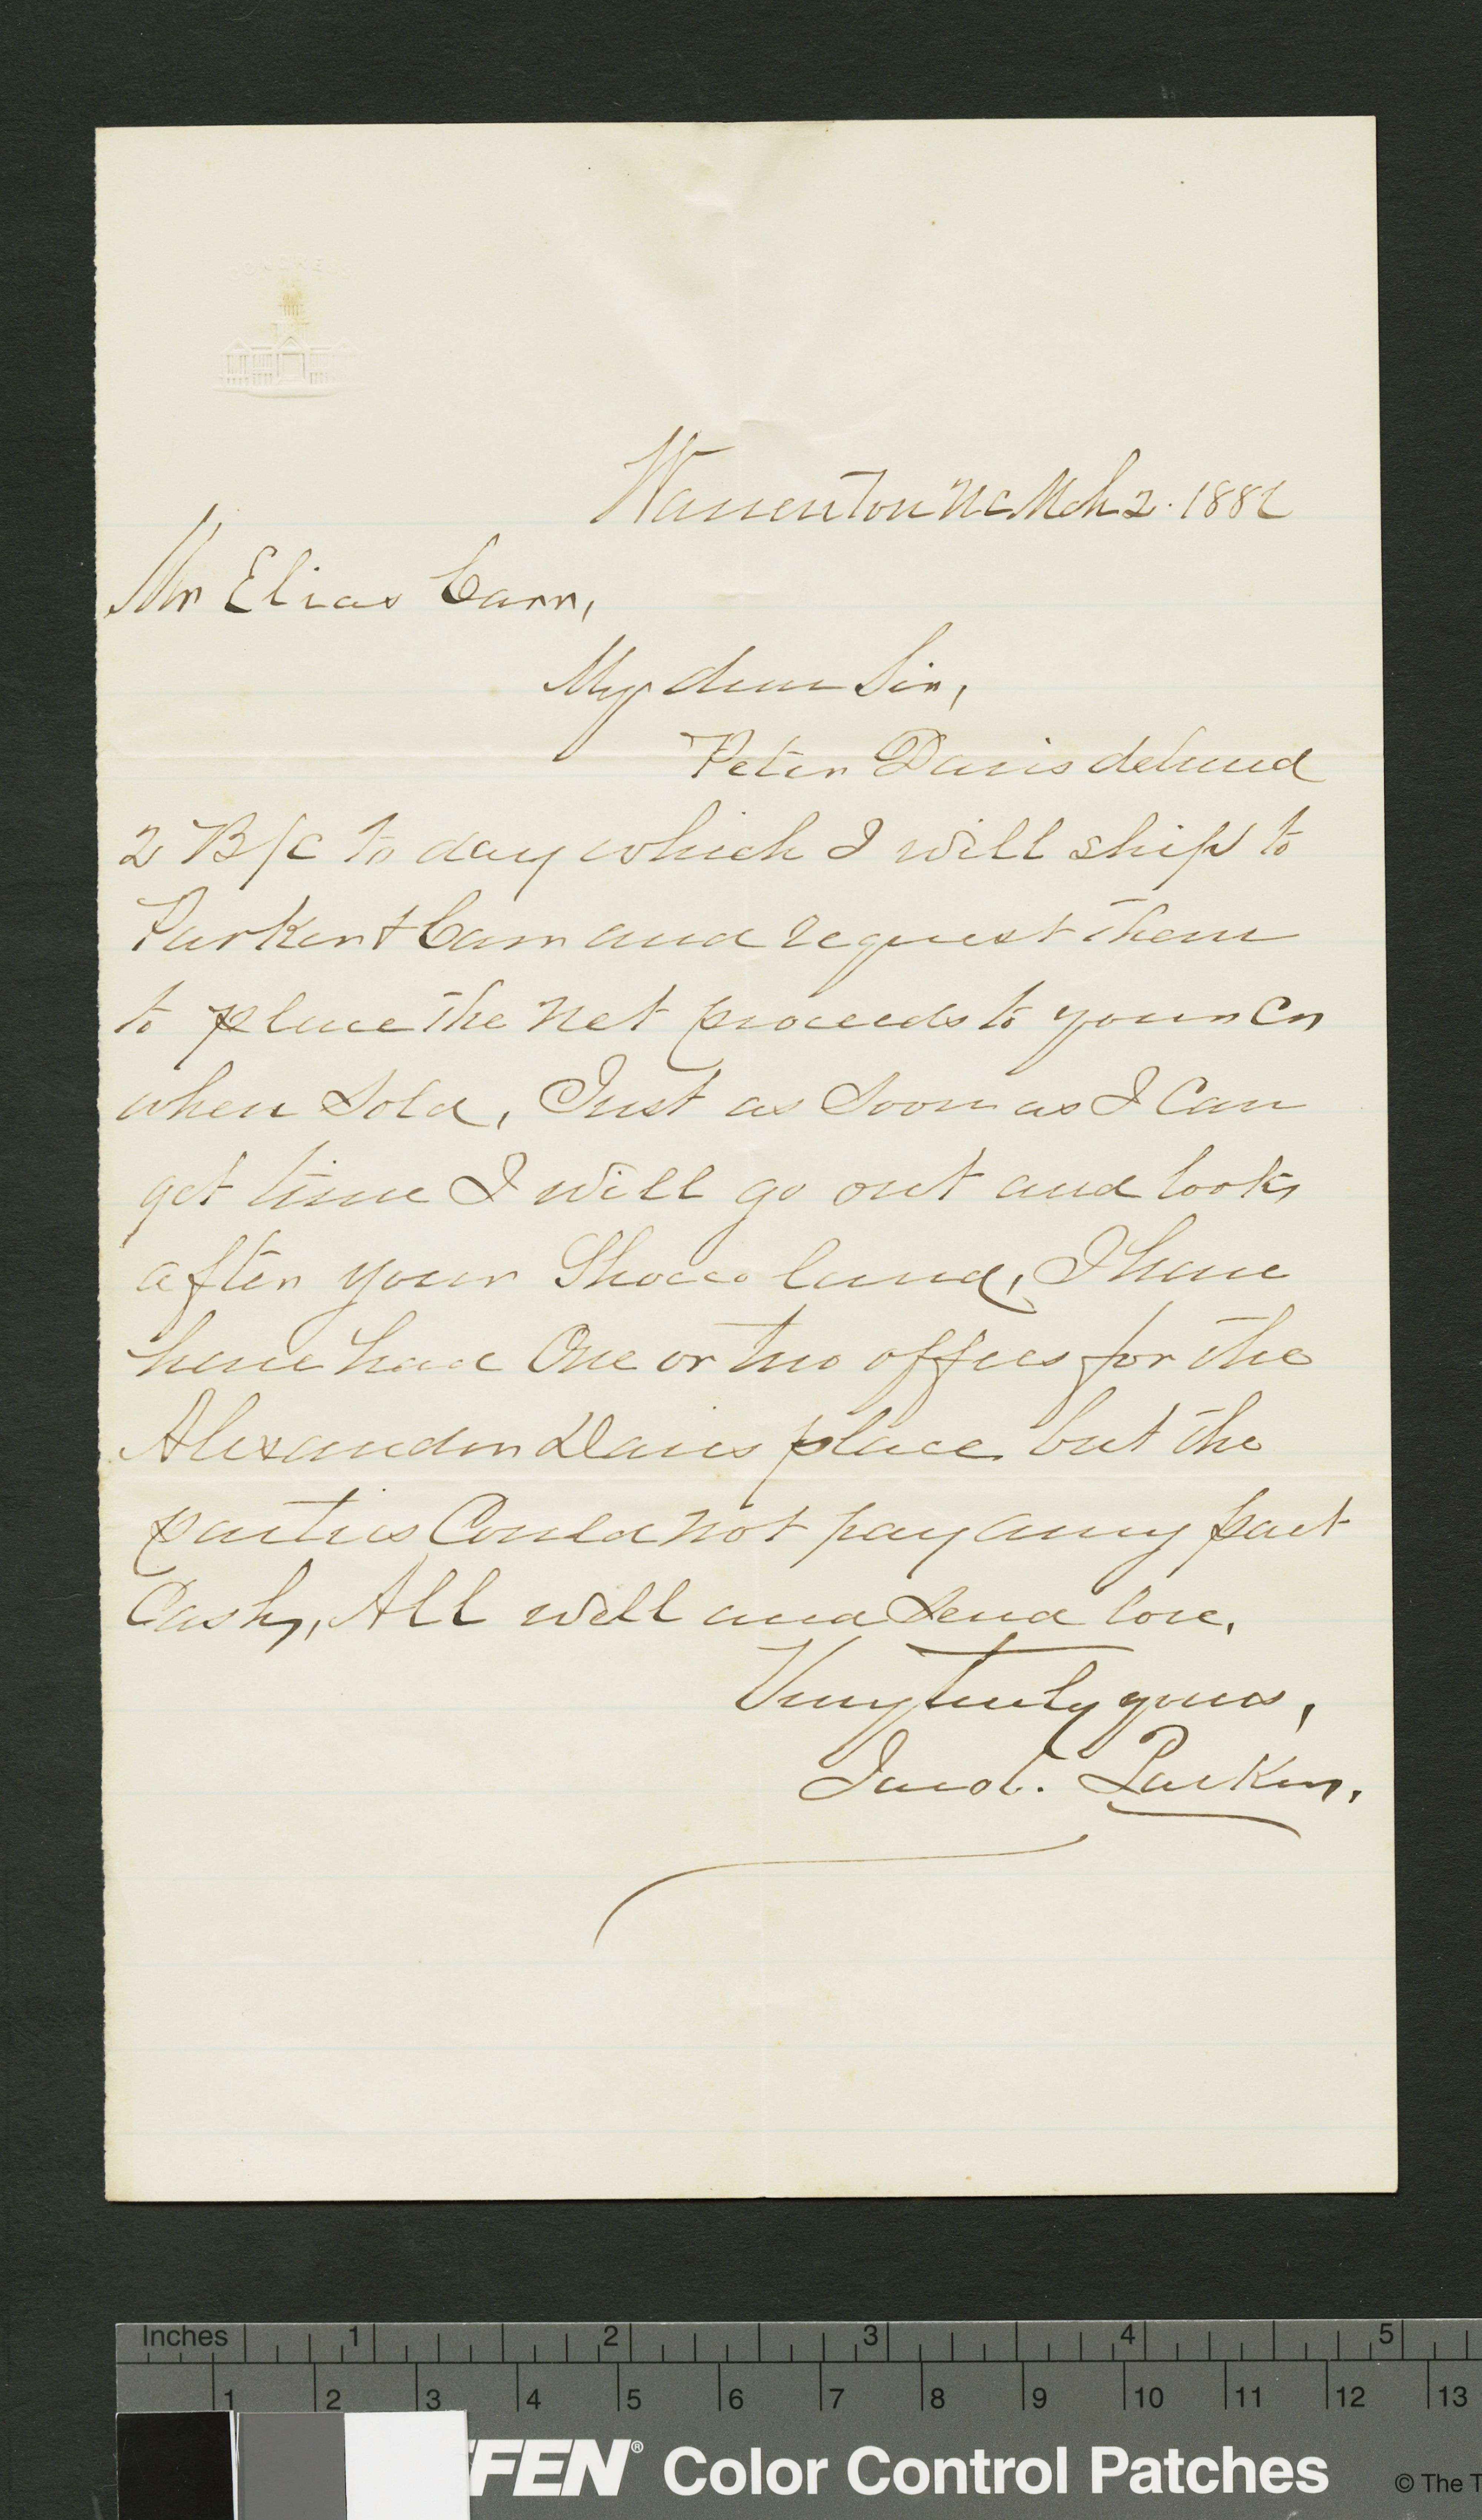 CONGRESS
Warrenton NC Mch 2. 188
Mr Elias Carr,
My dear Sir,
Peter Davis delivered
2 B/C to day which I will ship to
Parker & Carr and request them
to place the net proceeds to your Cr
when Sold, Just as Soon as I Can
get time I will go out and look
after your Shocco land, I have
have had One or two offers for the
Alexander Davis place but the
parties Could not pay any part
Cash, All well and Send love.
Very truly yours,
Jacob. Parker.
Inches 1 2 3 4 5
1 2 3 4 5 6 7 8 9 10 11 12 13
FFEN® Color Control Patches © The T